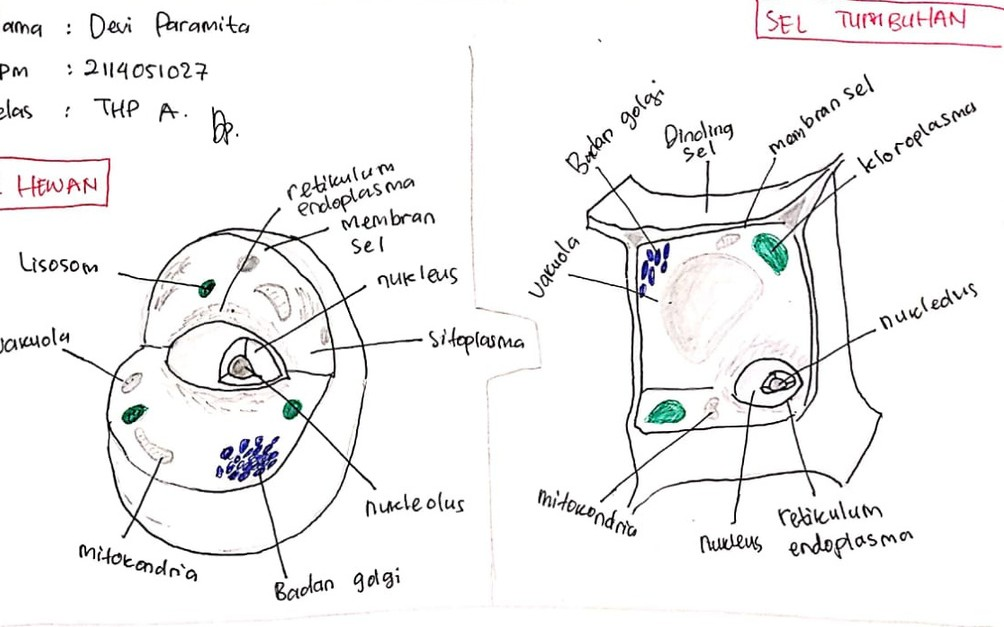 ama : Devi Paramita
pm : 2114051027
elas : THP A.
Dp.
HEWAN
retikulum
endoplasma
Membran
sel
Lisosom
nukleus
vakuola
Sitoplasma
nukleolus
mitokondria
Badan golgi
SEL TUMBUHAN
Badan golgi
Dinding
sel
membran sel
kloroplasma
Vakuola
nukledus
mitokondria
nukleus
retikulum
endoplasma